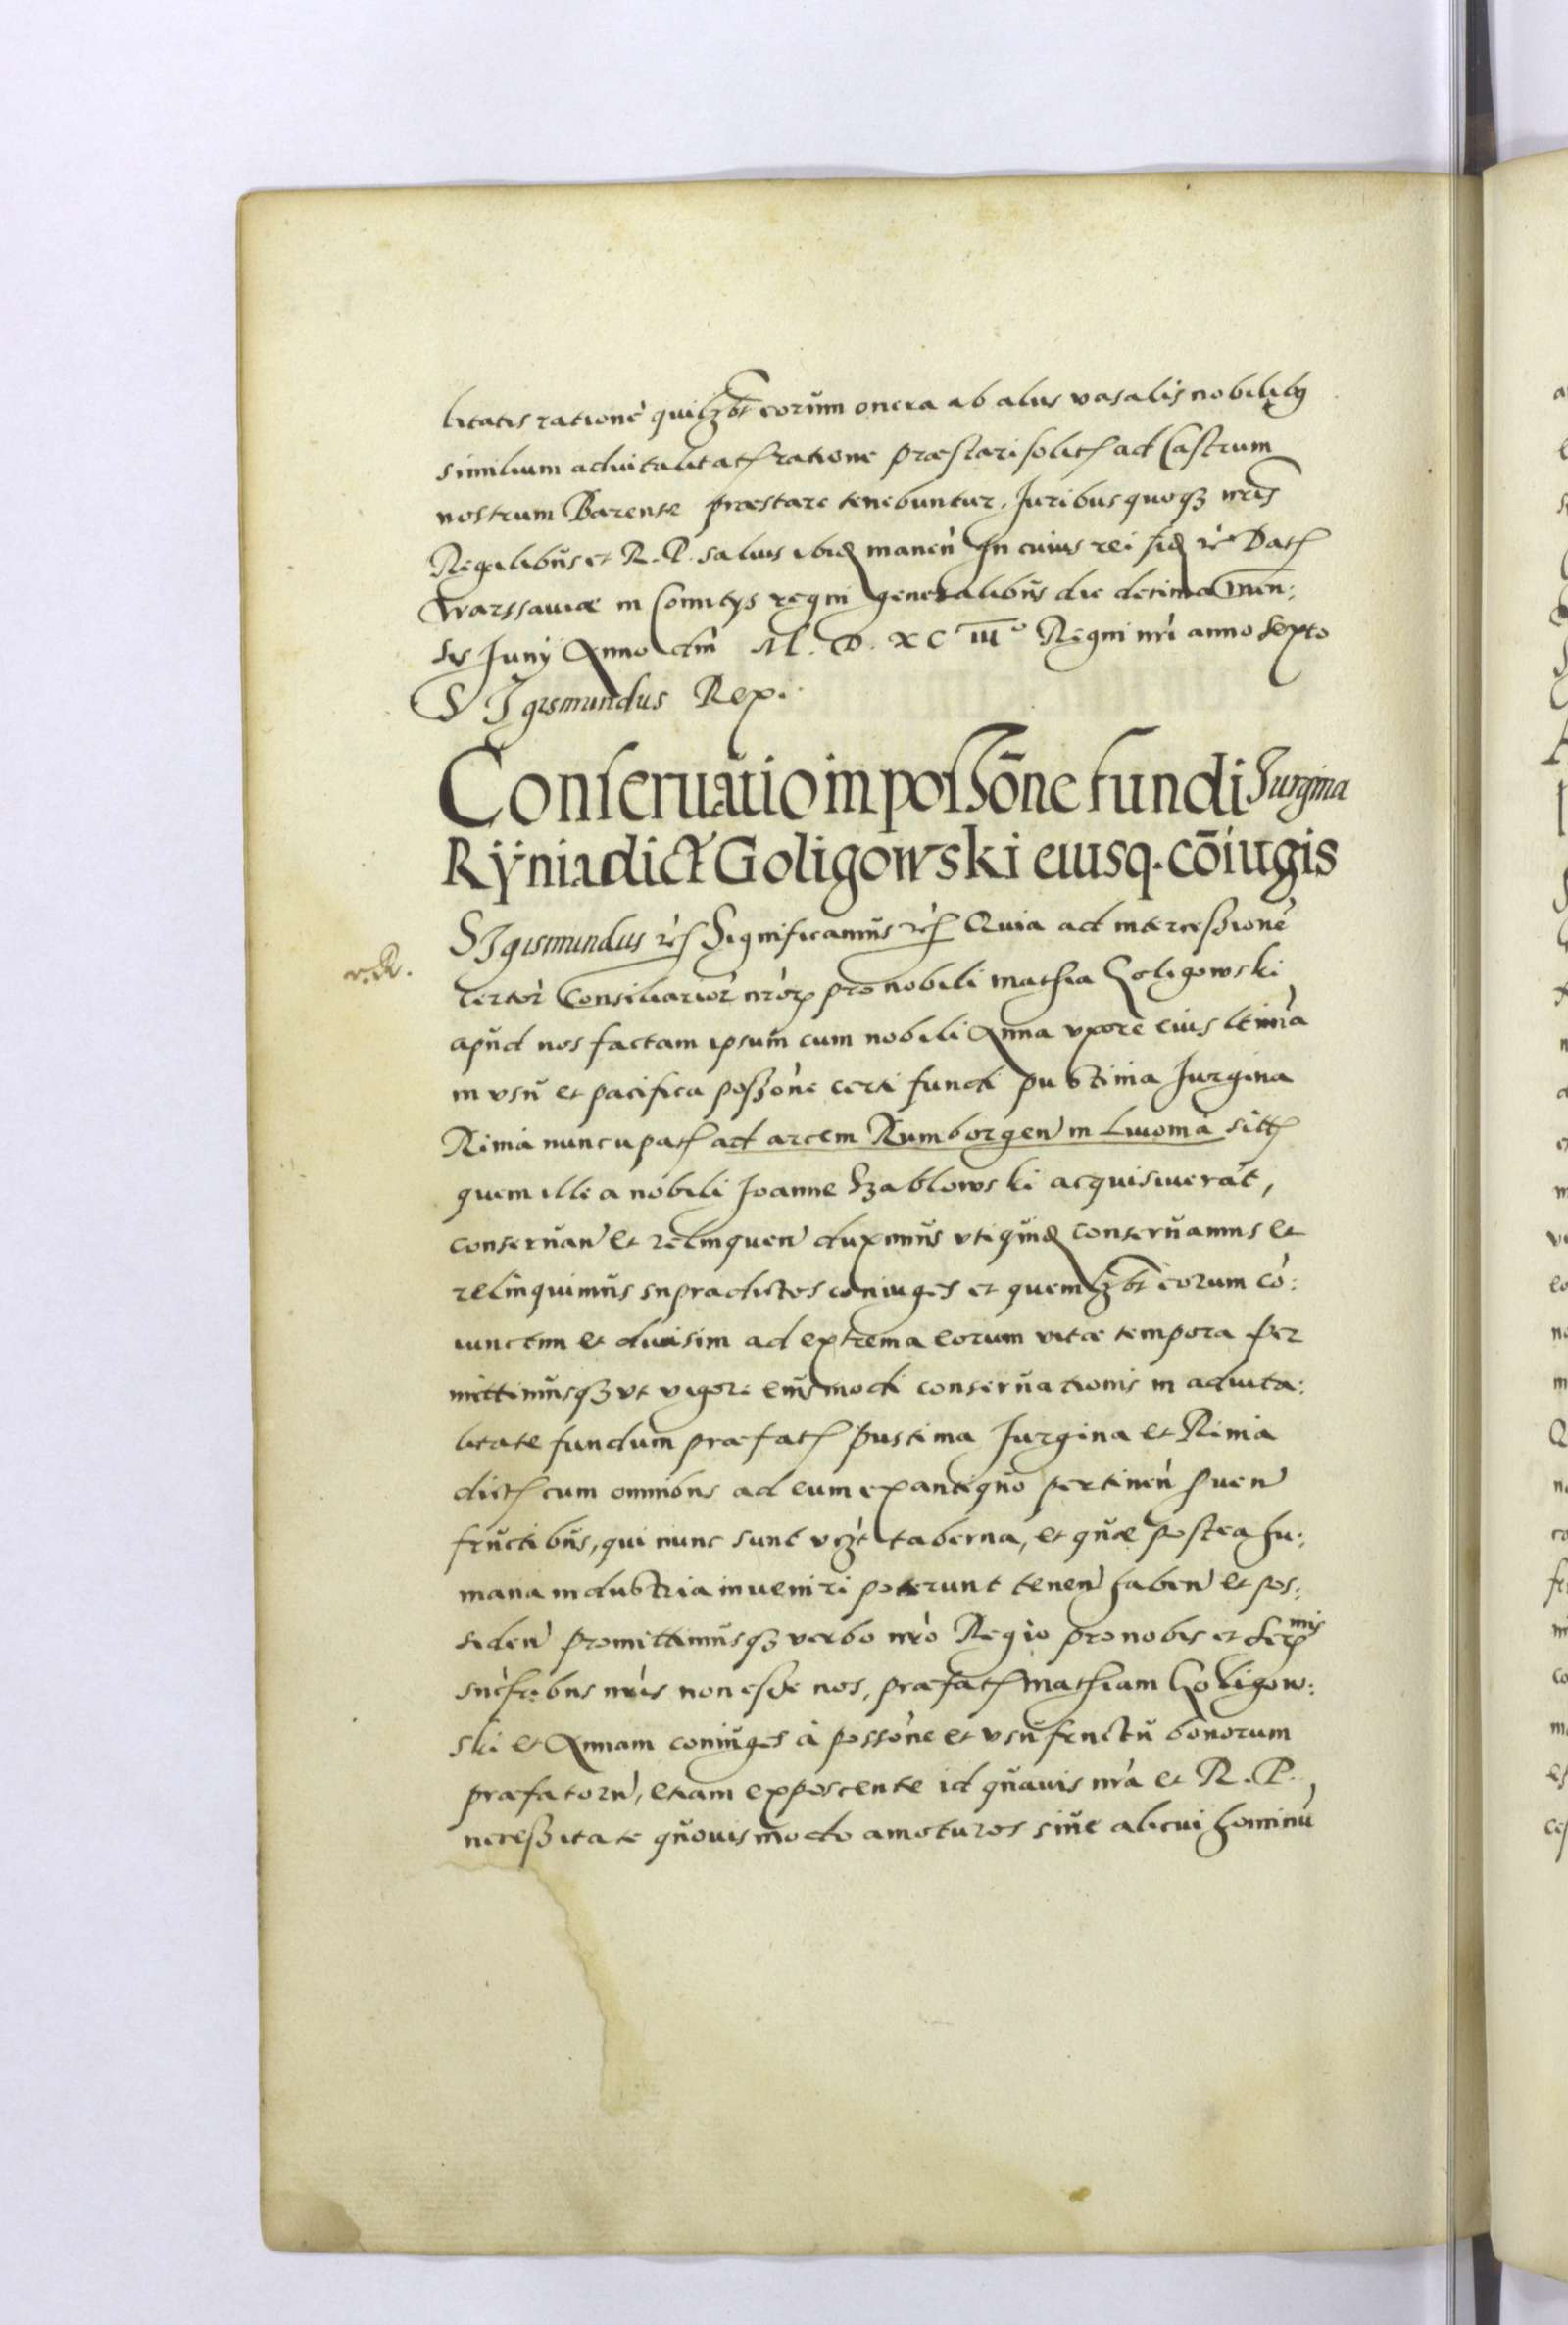 litatis ratione quilzbt eorum onera ab aliis vasalis nobilibq
similium advitalitatis ratione præstari solitis ad Castrum
nostrum Barense præstare tenebuntur. Juribus quoqz nris
Regalibus et R. P. salvis ibid manen In cuius rei fid rc Dat
Warssaviæ in Comitys regni generalibus die decima Men:
sis Juny Anno dni M. D. XC III° Regni nri anno Sexto
SIgismundus Rex.
Conservatio in possone fundi Jurgina
Rÿnia dict Goligowski eiusq. coniugis
r. R.
SIgismundus rc Significamus rc Quia ad intercessione
certor Consiliarior nror pro nobili Mathia Goligowski
apud nos factam ipsum cum nobili Anna uxore eius ltima
in usu et pacifica possone certi fundi pustinia Jurgina
Rinia nuncupat ad arcem Rumborgen in Livonia sitt
quem ille a nobili Joanne Szablowski acquisiverat,
conservan et relinquen duximus utiquid conservamus et
relinquimus supradictos coniuges et quemlzbt eorum co:
iunctim et divisim ad extrema eorum vitæ tempora per
mittimusqz ut vigore eiusmodi conservationis in advita:
litate fundum præfat pustinia Jurgina et Rinia
dict cum omnibus ad eum ex antiquo pertinen proven
fructibus, qui nunc sunt vzt taberna, et quæ postea hu:
mana industria inveniri poterunt tenen haben et pos:
siden promittimusqz verbo nro Regio pro nobis et Ser mis
sucsribus nris non esse nos, præfat Mathiam Goligow:
ski et Annam coniuges à possone et usufructu bonorum
præfatorū, etiam exposcente id quavis nra et R. P.
necessitate quovis modo amoturos sive alicui hominū